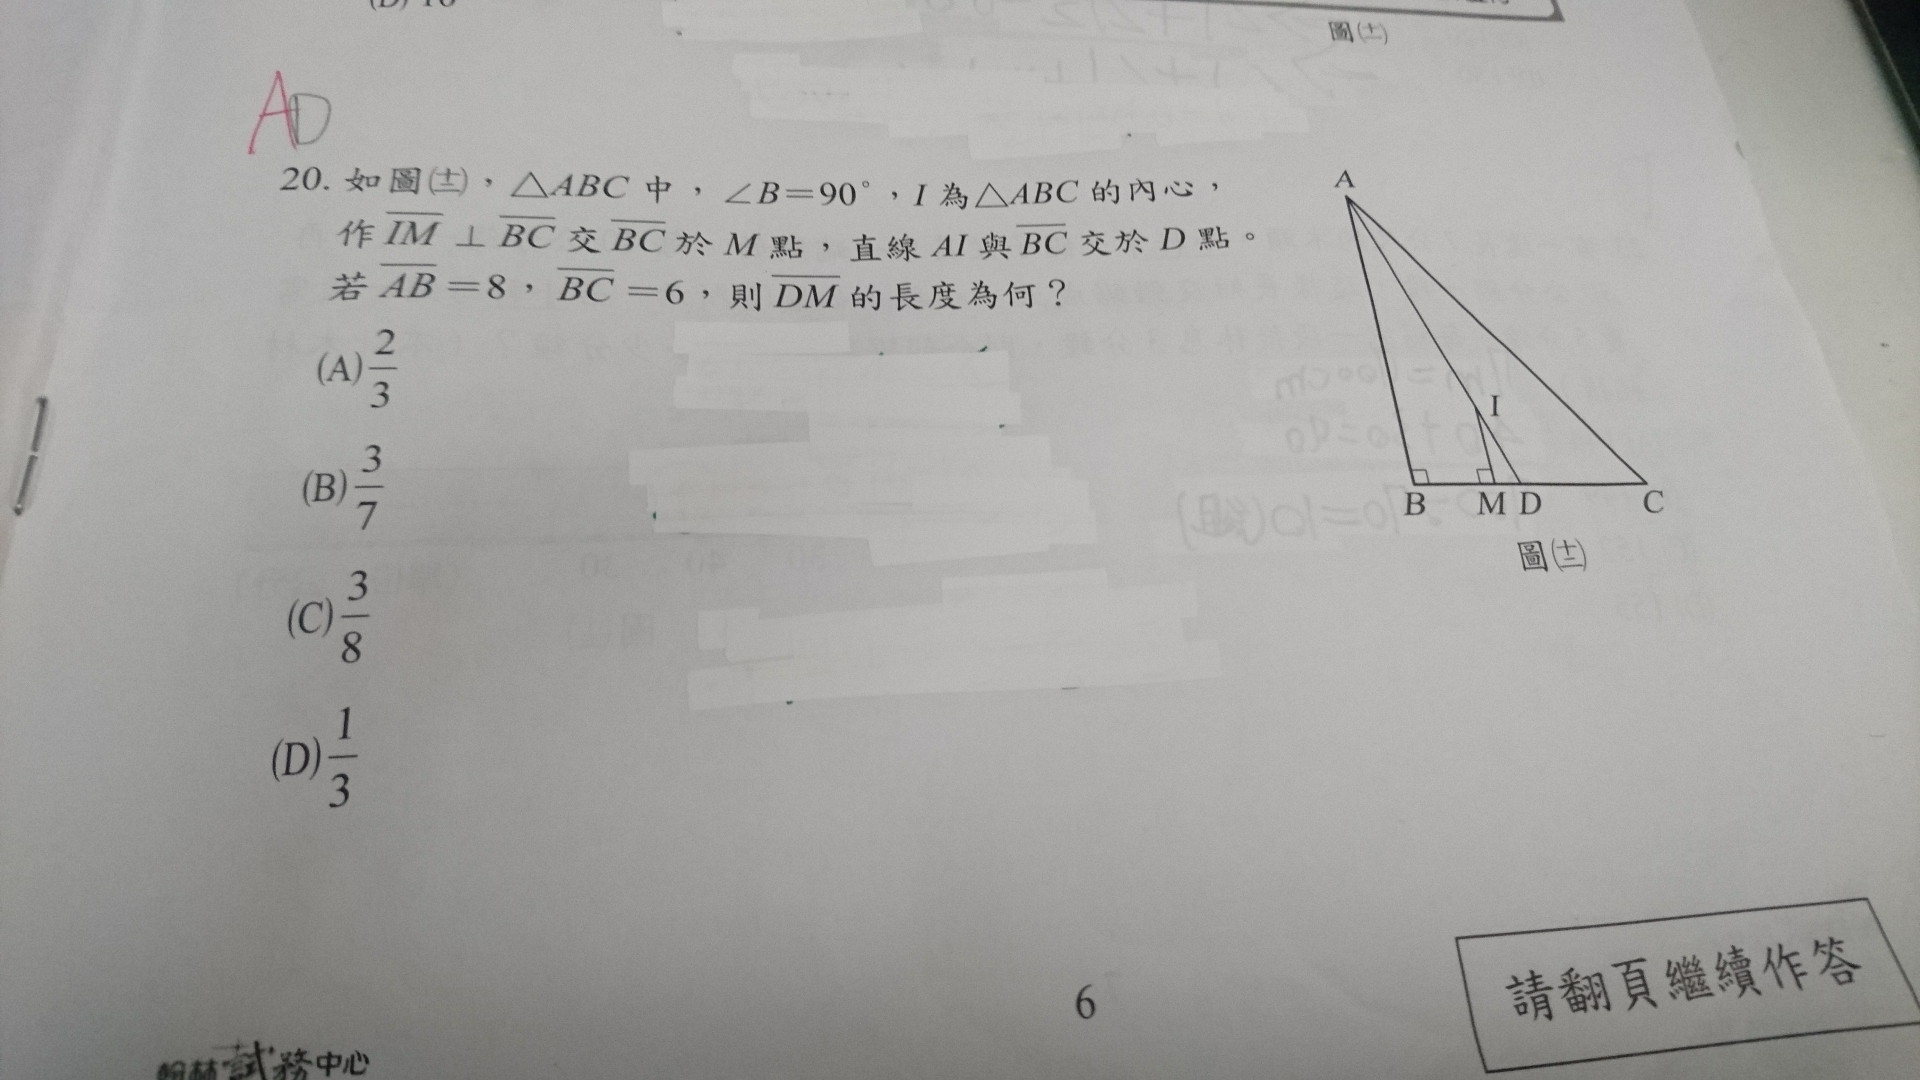 (D) 10
圖(十一)
AD
20. 如圖(十二)，△ABC 中，∠B＝90°，I 為△ABC 的內心，
作 IM ⊥ BC 交 BC 於 M 點，直線 AI 與 BC 交於 D 點。
若 AB＝8，BC＝6，則 DM 的長度為何？
(A) 2/3
(B) 3/7
(C) 3/8
(D) 1/3
A
I
B M D C
圖(十二)
請翻頁繼續作答
6
翰林試務中心